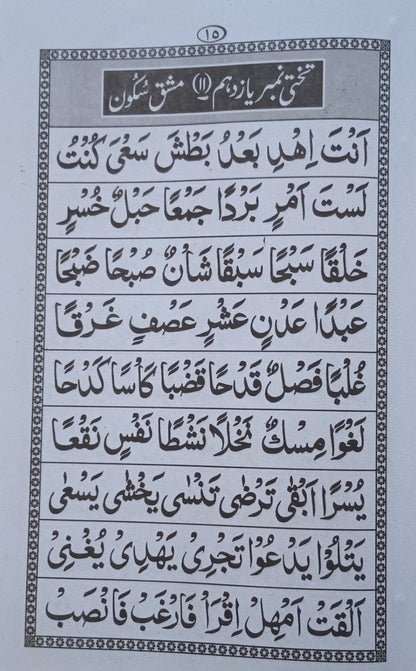 ۱۵
تختی نمبر یازدہم (۱۱) مشق سکون
اَنْتَ اِهْدِ بَعْدُ بَطْشَ سَعْیَ كُنْتُ
لَسْتَ اَمْرٍ بَرْدًا جَمْعًا حَبْلٌ خُسْرٍ
خَلْقًا سَبْحًا سَبْقًا شَاْنٌ صُبْحًا ضَبْحًا
عَبْدًا عَدْنٍ عَشْرٍ عَصْفٍ غَرْقًا
غُلْبًا فَصْلٌ قَدْحًا قَضْبًا كَاْسًا كَدْحًا
لَغْوًا مِسْكٌ نَخْلًا نَشْطًا نَفْسٍ نَقْعًا
یُسْرًا اَبْقٰی تَرْضٰی تَنْسٰی یَخْشٰی یَسْعٰی
یَتْلُوْا یَدْعُوْا تَجْرِیْ یَهْدِیْ یُغْنِیْ
اَلْقَتْ اَمْهِلْ اِقْرَاْ فَارْغَبْ فَانْصَبْ